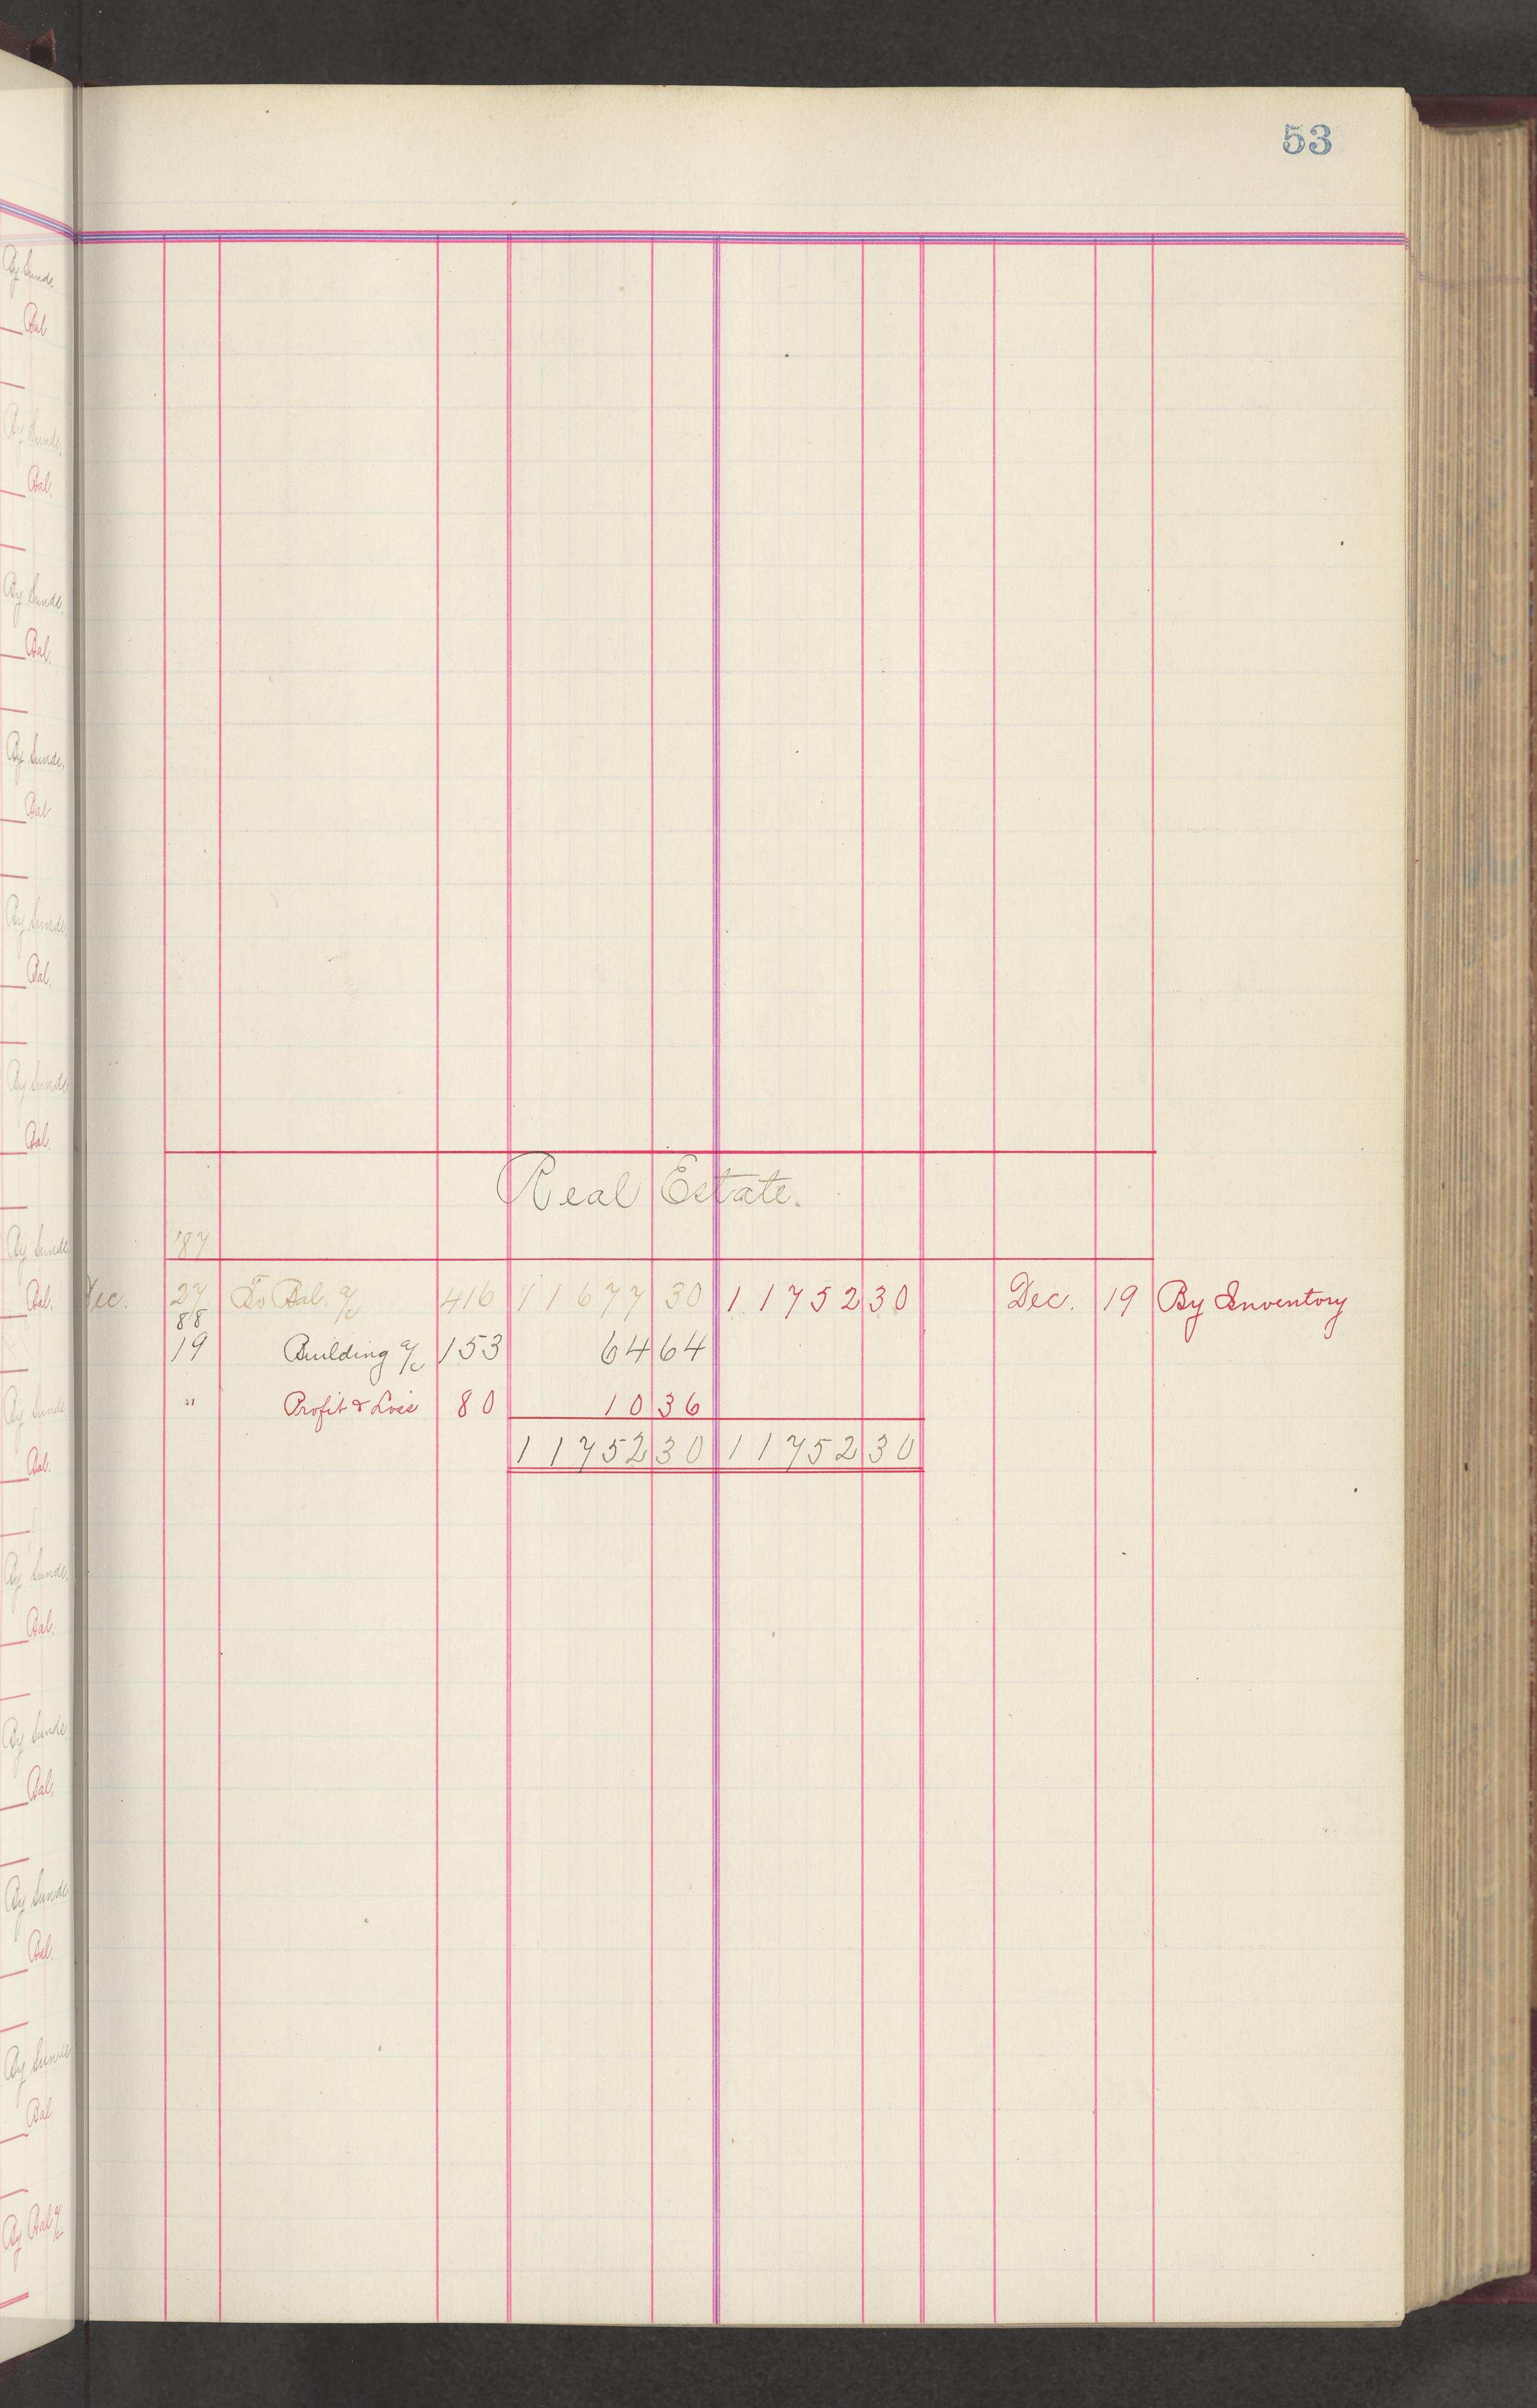 53
Real Estate.
'87
Dec. 27 To Bal. a/c 416 11677 30 11752 30 Dec. 19 By Inventory
88
19 Building a/c 153 64 64
" Profit & Loss 80 10 36
11752 30 11752 30
By Sunds
Bal
By Sunds.
Bal.
By Sunds.
Bal.
By Sunds.
Bal
By Sunds.
Bal.
By Sunds
Bal.
By Sunds
Bal.
By Sunds
Bal.
By Sunds.
Bal.
By Sunds.
Bal.
By Sunds
Bal.
By Sunds
Bal
By Bal a/c